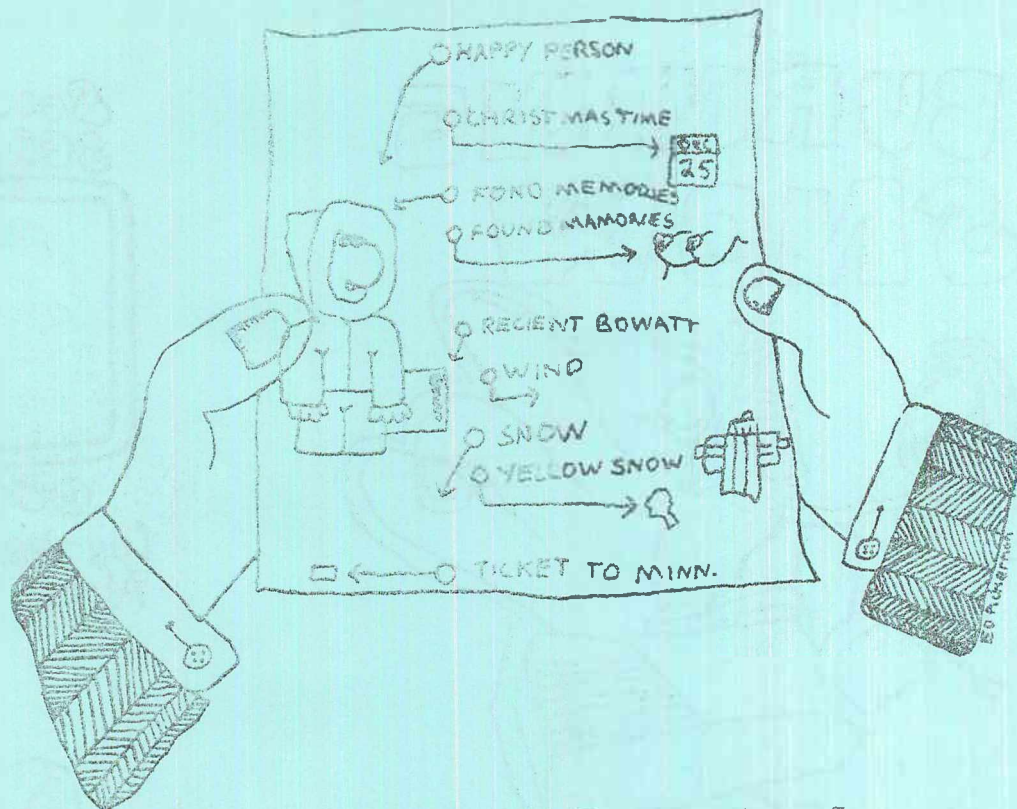 HAPPY PERSON
CHRISTMAS TIME
DEC
25
FOND MEMORIES
FOUND MAMORIES
RECIENT BOWATT
WIND
SNOW
YELLOW SNOW
TICKET TO MINN.
ED Pickerman